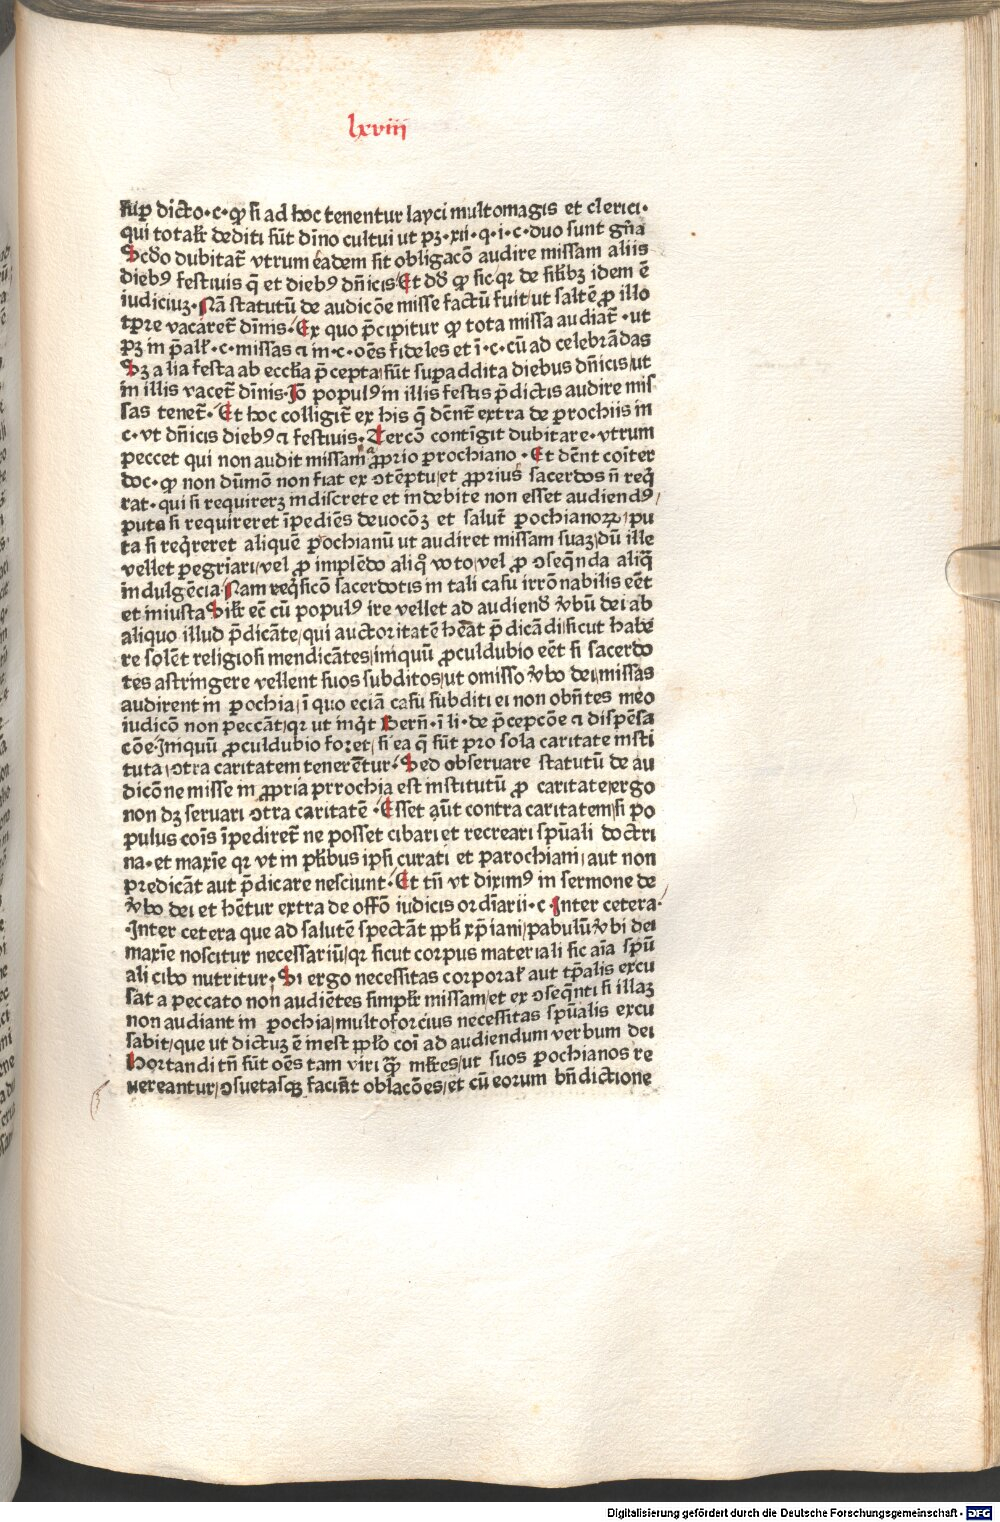 lxviii
sup̲ dicto·c·qꝫ si ad hoc tenentur layci multomagis et clerici·
qui totalr̄ dediti sūt dīno cultui ut pꝫ·xii·q·i·c·duo sunt gn̄a
Scd̄o dubitat̄ vtrum eadem sit obligacō audire missam aliis
diebꝰ festiuis q̄ et diebꝰ dn̄icis Et dd̄ ꝙ sic qr de silībꝫ idem ē
iudiciuꝫ·Nā statutū de audicōe misse factū fuit/ut saltē ꝓ illo
tp̄re vacaret̄ dīnis·Ex quo p̄cipitur ꝙ tota missa audiat̄·ut
pꝫ in p̄all̄·c·missas ⁊ in·c·oēs fideles et ī·c·cū ad celebrādas
Sꝫ alia festa ab eccl̄ia p̄cepta/sūt suꝑaddita diebus dn̄icis/ut
in illis vacet̄ dīnis·Iō populꝰ in illis festis p̄dictis audire mis
sas tenet̄·Et hoc colligit̄ ex his q̄ dēnt̄ extra de ꝑrochiis in
c·vt dn̄icis diebꝰ ⁊ festiuis·Tercō contīgit dubitare·vtrum
peccet qui non audit missam a ꝓprio ꝑrochiano·Et dēnt coīter
doc·ꝙ non dūmō non fiat ex ↄtēptu/et ꝓprius sacerdos n̄ req̄
rat·qui si requirerꝫ indiscrete et indebite non esset audiendꝰ/
puta si requireret īpediēs deuocōꝫ et salut̄ ꝑochianoꝝ/pu
ta si reqreret aliquē ꝑochianū ut audiret missam suaꝫ/dū ille
vellet ꝑegriari/vel ꝓ implēdo aliq̊ voto/vel ꝓ ↄseqn̄da aliq̄
indulgēcia·Nam reqsicō sacerdotis in tali casu irrōnabilis eēt
et iniusta Silr̄ ec̄ cū populꝰ ire vellet ad audiend̄ v̄bū dei ab
aliquo illud p̄dicāte/qui auctoritatē heāt p̄dicādi/sicut habē
re solēt religiosi mendicātes/iniquū ꝓculdubio eēt si sacerdo
tes astringere vellent suos subditos/ut omisso v̄bo dei/missas
audirent in ꝑochia/ī quo eciā casu subditi ei non obn̄tes meo
iudicō non peccāt/qr ut inqt Bern̄·ī li·de p̄cepcōe ⁊ dispēsa
cōe·Iniquū ꝓculdubio foret/si ea q̄ sūt pro sola caritate insti
tuta/ↄtra caritatem tenerētur·Sed obseruare statutū de au
dicōne misse in ꝓpria prrochia est institutū ꝓ caritate/ergo
non dꝫ seruari ↄtra caritatē·Esset aūt contra caritatem/si po
pulus coīs īpediret̄ ne posset cibari et recreari spūali doctri
na·et maxīe qr vt in pl̄ibus ipsi curati et parochiani/aut non
predicāt aut p̄dicare nesciunt·Et tn̄ vt diximꝰ in sermone de
v̄bo dei et hēntur extra de offō iudicis ordīarii·c Inter cetera·
·Inter cetera que ad salutē spectāt ppl̄i xp̄iani/pabulū v̄bi dei
maxīe noscitur necessariū/qr sicut corpus materiali sic aīa spū
ali cibo nutritur·Si ergo necessitas corporal̄ aut tp̄alis excu
sāt a peccato non audiētes simpl̄r missam/et ex ↄseqn̄ti si illaꝫ
non audiant in ꝑochia/multoforcius necessitas spūalis excu
sabit/que ut dictuꝫ ē inest ppl̄o coī ad audiendum verbum dei
Hortandi tn̄ sūt oēs tam viri q̄ꝫ ml̄res/ut suos ꝑochianos re
uereantur/ↄsuetasqꝫ faciāt oblacōes/et cū eorum bn̄dictione
Digitalisierung gefördert durch die Deutsche Forschungsgemeinschaft - DFG